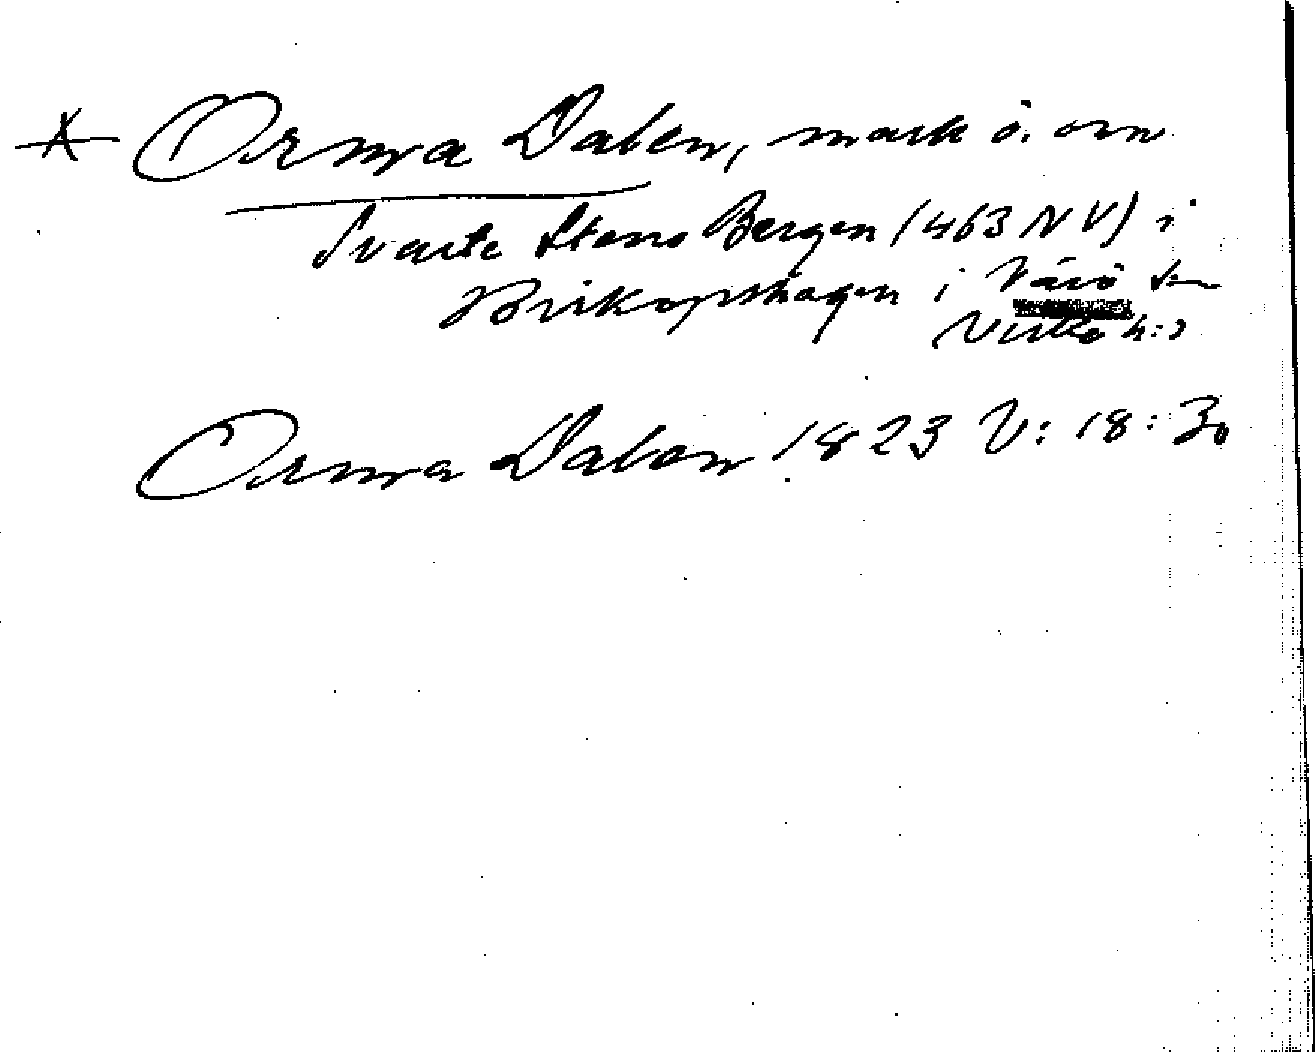 * Orma Dalen, mark ö. om
Svarte Stens Bergen (463 NV) i
Biskopshagen i Värö sn
Viske h:d
Orma Dalen 1823 V: 18: 30